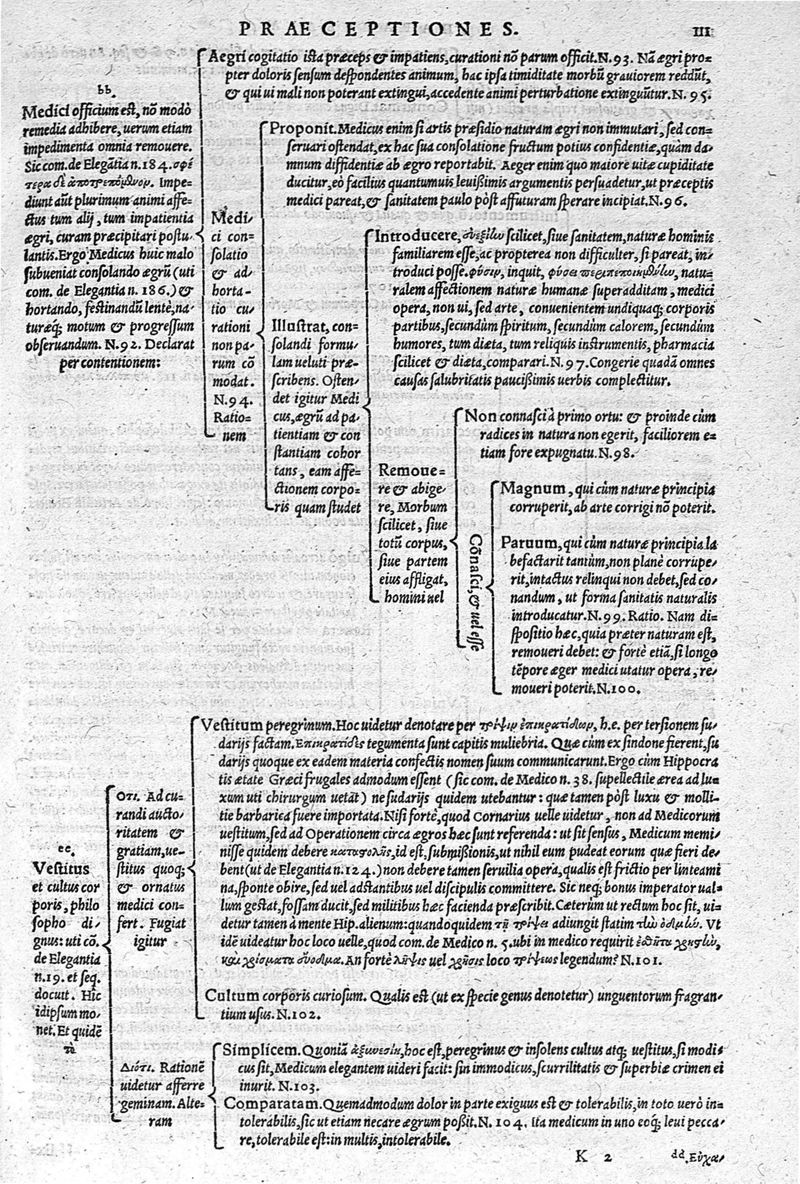 PRAECEPTIONES. III
Aegri cogitatio ista præceps & impatiens, curationi nõ parum officit. N. 93. Nã ægri pro-
pter doloris sensum despondentes animum, hac ipsa timiditate morbũ grauiorem reddũt,
& qui ui mali non poterant extingui, accedente animi perturbatione extinguũtur. N. 95.
bb.
Medici officium est, nõ modò
remedia adhibere, uerum etiam
impedimenta omnia remouere.
Sic com. de Elegãtia n. 184. σφέ
τερα δὲ
Impe-
diunt aũt plurimum animi affe-
ctus tum alij, tum impatientia
ægri, curam præcipitari postu-
lantis. Ergo Medicus huic malo
subueniat consolando ægrũ (uti
com. de Elegantia n. 186.) &
hortando, festinandũ lentè, na-
turæq; motum & progressum
obseruandum. N. 92. Declarat
per contentionem:
Medi-
ci con-
solatio
& ad-
horta-
tio cu-
rationi
non pa-
rum cõ
modat.
N. 94.
Ratio-
nem
Proponit. Medicus enim si artis præsidio naturam ægri non immutari, sed con-
seruari ostendat, ex hac sua consolatione fructum potius confidentiæ, quàm da-
mnum diffidentiæ ab ægro reportabit. Aeger enim quo maiore uitæ cupiditate
ducitur, eò facilius quantumuis leuißimis argumentis persuadetur, ut præceptis
medici pareat, & sanitatem paulo pòst affuturam sperare incipiat. N. 96.
Illustrat, con-
solandi formu-
lam ueluti præ-
scribens. Osten-
det igitur Medi
cus, ægrũ ad pa-
tientiam & con
stantiam cohor
tans, eam affe-
ctionem corpo-
ris quam studet
Introducere, scilicet, siue sanitatem, naturæ hominis
familiarem esse, ac propterea non difficulter, si pareat, in-
troduci posse. φύσιν, inquit, natu-
ralem affectionem naturæ humanæ superadditam, medici
opera, non ui, sed arte, conuenientem undiquaq; corporis
partibus, secundùm spiritum, secundùm calorem, secundùm
humores, tum diæta, tum reliquis instrumentis, pharmacia
scilicet & diæta, comparari. N. 97. Congerie quadã omnes
causas salubritatis paucißimis uerbis complectitur.
Remoue-
re & abige-
re, Morbum
scilicet, siue
totũ corpus,
siue partem
eius affligat,
homini uel
Non connasci à primo ortu: & proinde cùm
radices in natura non egerit, faciliorem e-
tiam fore expugnatu. N. 98.
Cõnasci, & uel esse
Magnum, qui cùm naturæ principia
corruperit, ab arte corrigi nõ poterit.
Paruum, qui cùm naturæ principia la
befactarit tantùm, non planè corrupe-
rit, intactus relinqui non debet, sed co-
nandum, ut forma sanitatis naturalis
introducatur. N. 99. Ratio. Nam di-
spositio hæc, quia præter naturam est,
remoueri debet: & fortè etiã, si longo
tẽpore æger medici utatur opera, re-
moueri poterit. N. 100.
ee.
Vestitus
et cultus cor
poris, philo
sopho di-
gnus: uti cõ.
de Elegantia
n. 19. et seq.
docuit. Hic
idipsum mo-
net. Et quidẽ
τὸ
Οτι. Ad cu-
randi aucto-
ritatem &
gratiam, ue-
stitus quoq;
& ornatus
medici con-
fert. Fugiat
igitur
Vestitum peregrinum. Hoc uidetur denotare per τρίψιν ἐπικρατίδων, h.e. per tersionem su-
darijs factam. Επικρατίδες tegumenta sunt capitis muliebria. Quæ cùm ex sindone fierent, su
darijs quoque ex eadem materia confectis nomen suum communicarunt. Ergo cùm Hippocra
tis ætate Græci frugales admodum essent (sic com. de Medico n. 38. supellectile ærea ad lu-
xum uti chirurgum uetãt) ne sudarijs quidem utebantur: quæ tamen pòst luxu & molli-
tie barbarica fuere importata. Nisi fortè, quod Cornarius uelle uidetur, non ad Medicorum
uestitum, sed ad Operationem circa ægros hæc sunt referenda: ut sit sensus, Medicum memi-
nisse quidem debere καταστολῆς, id est, submißionis, ut nihil eum pudeat eorum quæ fieri de-
bent (ut de Elegantia n. 124.) non debere tamen seruilia opera, qualis est frictio per linteami
na, sponte obire, sed uel adstantibus uel discipulis committere. Sic neq; bonus imperator ual-
lum gestat, fossam ducit, sed militibus hæc facienda præscribit. Cæterùm ut rectum hoc sit, ui-
detur tamen à mente Hip. alienum: quandoquidem τῇ τρίψει adiungit statim τὴν ὀδμὴν. Vt
idẽ uideatur hoc loco uelle, quod com. de Medico n. 5. ubi in medico requirit ἐσθῆτα χρηστὴν,
καὶ χρίσματα εὔοδμα. An fortè λῆψις uel χρῆσις loco τρίψεως legendum? N. 101.
Cultum corporis curiosum. Qualis est (ut ex specie genus denotetur) unguentorum fragran-
tium usus. N. 102.
Διότι. Rationẽ
uidetur afferre
geminam. Alte-
ram
Simplicem. Quoniã hoc est, peregrinus & insolens cultus atq; uestitus, si modi-
cus sit, Medicum elegantem uideri facit: sin immodicus, scurrilitatis & superbiæ crimen ei
inurit. N. 103.
Comparatam. Quemadmodum dolor in parte exiguus est & tolerabilis, in toto uerò in-
tolerabilis, sic ut etiam necare ægrum poßit. N. 104. Ita medicum in uno eoq; leui pecca-
re, tolerabile est: in multis, intolerabile.
K 2 dd. Εὐχα-